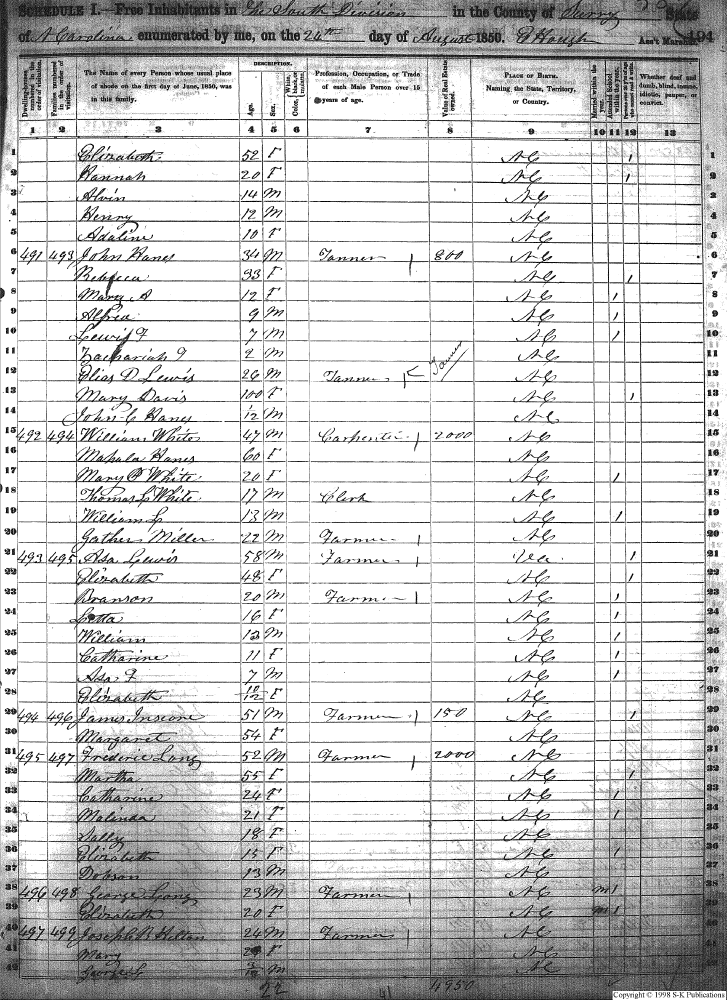 SCHEDULE I.—Free Inhabitants in The South Division in the County of Surry State
of N Carolina enumerated by me, on the 26th day of August 1850. Ass't Marshal. 194
Dwelling-houses numbered in the order of visitation.
Families numbered in the order of visitation.
The Name of every Person whose usual place of abode on the first day of June, 1850, was in this family.
DESCRIPTION.
Age.
Sex.
Color, White, black, or mulatto.
Profession, Occupation, or Trade of each Male Person over 15 years of age.
Value of Real Estate owned.
PLACE OF BIRTH. Naming the State, Territory, or Country.
Married within the year.
Attended School within the year.
Persons over 20 y'rs of age who cannot read & write.
Whether deaf and dumb, blind, insane, idiotic, pauper, or convict.
1 2 3 4 5 6 7 8 9 10 11 12 13
1 Elizabeth 52 F NC / 1
2 Hannah 20 F NC / 2
3 Alvin 14 M NC 3
4 Henry 12 M NC 4
5 Adaline 10 F NC 5
6 491 493 John Hanes 34 M Tanner / 800 NC 6
7 Rebecca 33 F NC / 7
8 Mary A 12 F NC / 8
9 Alfred 9 M NC / 9
10 Lewis F 7 M NC / 10
11 Zachariah T 2 M NC 11
12 Elias D Lewis 26 M Tanner / Tanner NC 12
13 Mary Davis 100 F NC / 13
14 John C Hanes 12 M NC 14
15 492 494 William White 47 M Carpenter / 2000 NC 15
16 Mahala Hanes 60 F NC 16
17 Mary White 20 F NC / 17
18 Thomas L White 17 M Clerk NC 18
19 William L 13 M NC / 19
20 Gather Miller 22 M Farmer / NC 20
21 493 495 Asa Lewis 58 M Farmer / Va / 21
22 Elizabeth 48 F NC / 22
23 Branson 20 M Farmer / NC / 23
24 16 F NC / 24
25 William 13 M NC / 25
26 Catharine 11 F NC / 26
27 Asa F 7 M NC / 27
28 Elizabeth F NC 28
29 494 496 James Inscore 51 M Farmer / 150 NC / 29
30 Margaret 54 F NC 30
31 495 497 Frederic Long 52 M Farmer / 2000 NC 31
32 Martha 55 F NC / 32
33 Catharine 24 F NC / 33
34 Malinda 21 F NC / 34
35 Sally 18 F NC 35
36 Elizabeth 15 F NC / 36
37 Dobson 13 M NC 37
38 496 498 George Long 23 M Farmer / NC m / 38
39 Elizabeth 20 F NC m / 39
40 497 499 Joseph B Hilton 24 M Farmer / NC 40
41 Mary F NC 41
42 George L M NC 42
22 41 4950
Copyright © 1998 S-K Publications